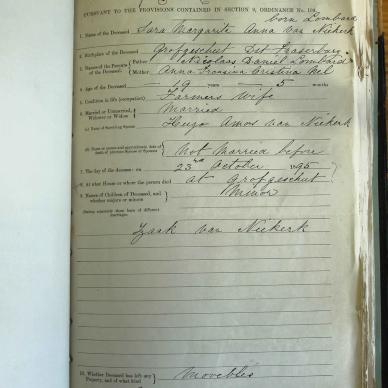 PURSUANT TO THE PROVISIONS CONTAINED IN SECTION 9, ORDINANCE No. 104
born Lombard
1. Name of the Deceased Sara Margarita Anna van Niekerk
2. Birthplace of the Deceased Grofgeschut Dist Fraserburg
3. Names of the Parents of the Deceased
Father Nicolaas Daniel Lombard
Mother Anna Fransina Cristina Nel
4. Age of the Deceased 19 years 5 months
5. Condition in life (occupation) Farmers Wife
6. Married or Unmarried, Widower or Widow Married
(a) Name of Surviving Spouse Hugo Amos van Niekerk
(b) Name or names and approximate date of death of previous Spouse or Spouses Not Married before
7. The day of the decease: on 23rd October 1895
8. At what House or where the person died at Grofgeschut
9. Names of Children of Deceased, and whether majors or minors Minor
Stating separately those born of different marriages
Izaak van Niekerk
10. Whether Deceased has left any Property, and of what kind Movebles